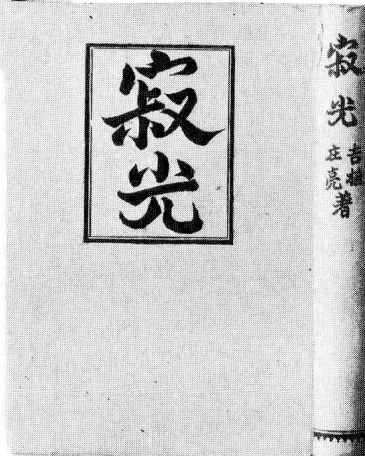 寂光
寂光
吉植
庄亮
著